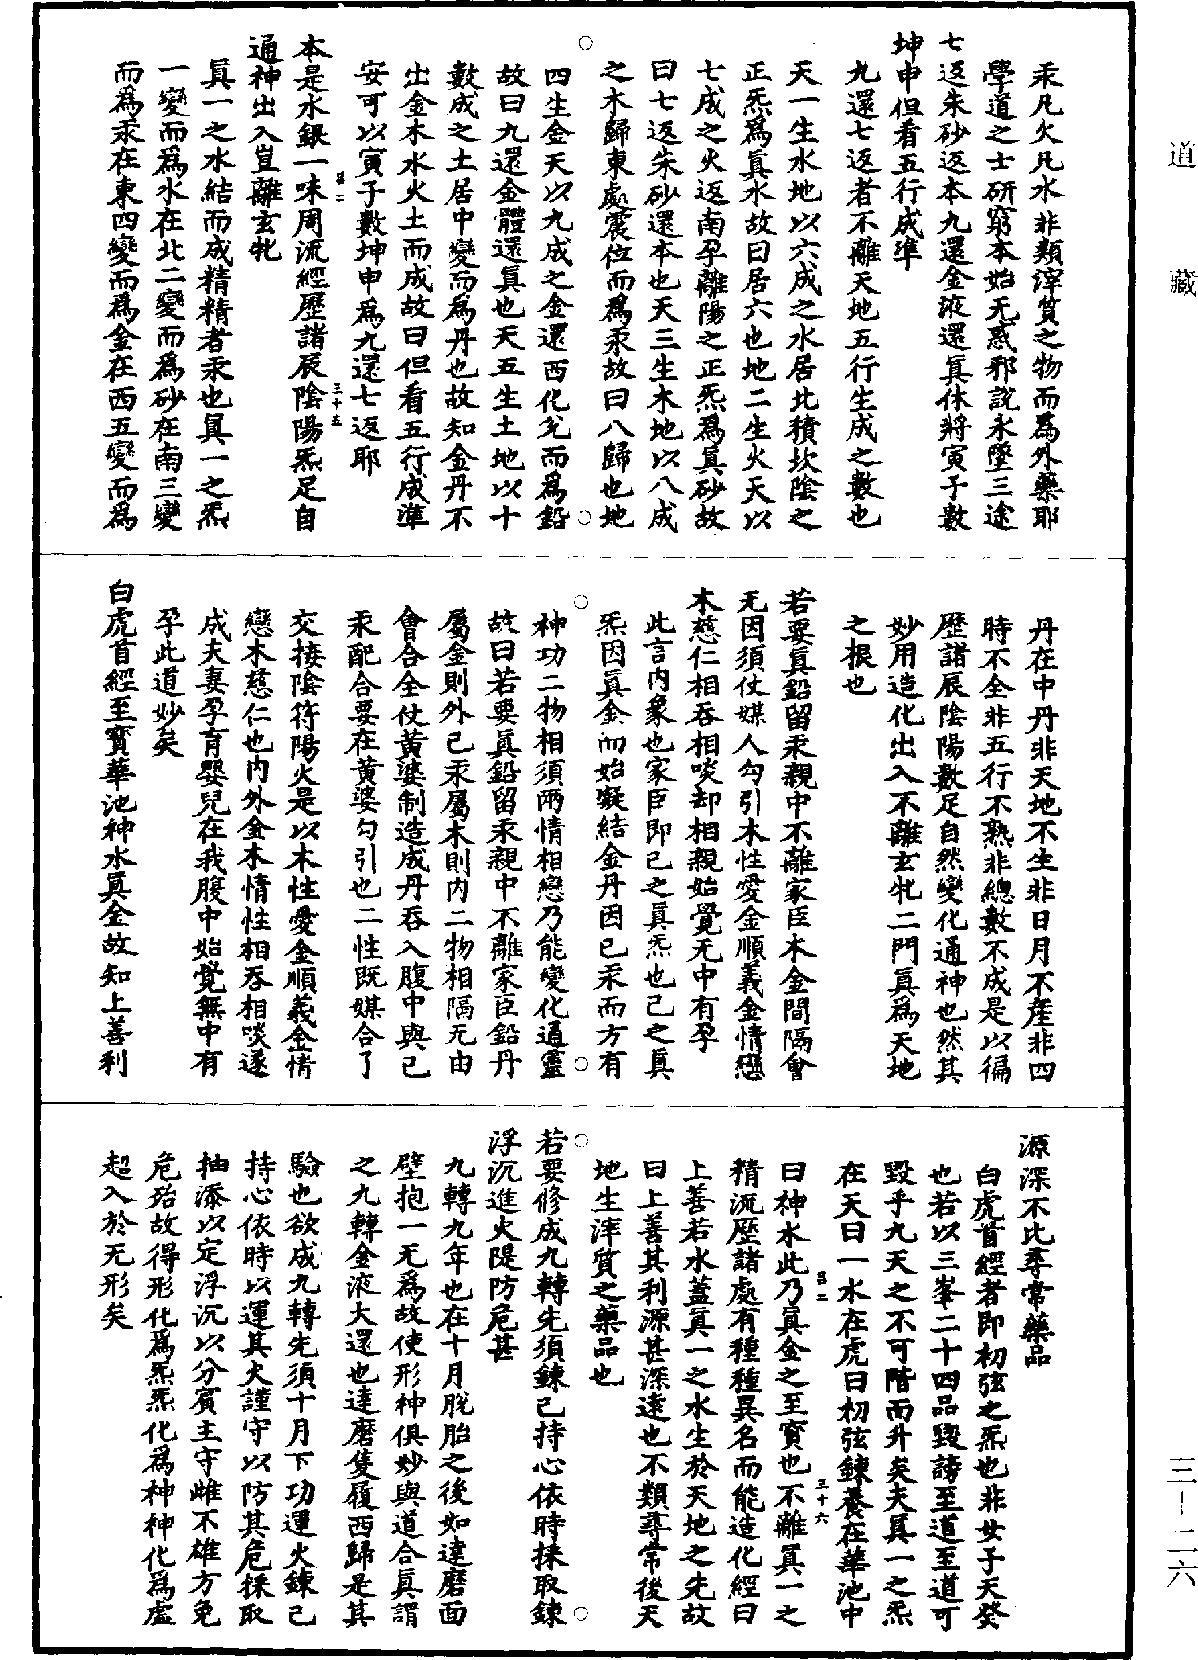 道藏
三—二六
汞凡欠凡水非類滓質之物而爲外藥耶
學道之士研窮本始无惑邪說永墜三途
七返朱砂返本九還金液還眞休將寅子數
坤申但看五行成準
九還七返者不離天地五行生成之數也
天一生水地以六成之水居北積坎陰之
正炁爲眞水故曰居六也地二生火天以
七成之火返南孕離陽之正炁爲眞砂故
曰七返朱砂還本也天三生木地以八成
之木歸東處震位而爲汞故曰八歸也地
四生金天以九成之金還西化兊而爲鉛
故曰九還金體還眞也天五生土地以十
數成之土居中變而爲丹也故知金丹不
出金木水火土而成故曰但看五行成準
安可以寅子數坤申爲九還七返耶
本是水銀一味周流經歷諸辰陰陽炁足自
呂二
三十五
通神出入豈離玄牝
眞一之水結而成精精者汞也眞一之炁
一變而爲水在北二變而爲砂在南三變
而爲汞在東四變而爲金在西五變而爲
丹在中丹非天地不生非日月不產非四
時不全非五行不熟非總數不成是以徧
歷諸辰陰陽數足自然變化通神也然其
妙用造化出入不離玄牝二門眞爲天地
之根也
若要眞鉛留汞親中不離家臣木金間隔會
无因須仗媒人勾引木性愛金順義金情戀
木慈仁相吞相啖却相親始覺无中有孕
此言内象也家臣即己之眞炁也己之眞
炁因眞金而始凝結金丹因己汞而方有
神功二物相須兩情相戀乃能變化通靈
故曰若要眞鉛留汞親中不離家臣鉛丹
屬金則外己汞屬木則内二物相隔无由
會合全仗黄婆制造成丹吞入腹中與己
汞配合要在黄婆勾引也二性既媒合了
交接陰符陽火是以木性愛金順義金情
戀木慈仁也内外金木情性相吞相啖遂
成夫妻孕育嬰兒在我腹中始覺無中有
孕此道妙矣
白虎首經至寳華池神水眞金故知上善利
源深不比尋常藥品
白虎首經者即初弦之炁也非女子天癸
也若以三峯二十四品毁謗至道至道可
毀乎九天之不可階而升矣夫眞一之炁
在天曰一水在虎曰初弦鍊養在華池中
呂二
三十六
曰神水此乃眞金之至寳也不離眞一之
精流歷諸處有種種異名而能造化經曰
上善若水蓋眞一之水生於天地之先故
曰上善其利源甚深遠也不類尋常後天
地生滓質之藥品也
若要修成九轉先須鍊己持心依時採取鍊
浮沉進火隄防危甚
九轉九年也在十月脫胎之後如達磨面
壁抱一无爲故使形神俱妙與道合眞謂
之九轉金液大還也達磨隻履西歸是其
驗也欲成九轉先須十月下功運火鍊己
持心依時以運其火謹守以防其危採取
抽添以定浮沉以分賓主守雌不雄方免
危殆故得形化爲炁炁化爲神神化爲虛
超入於无形矣